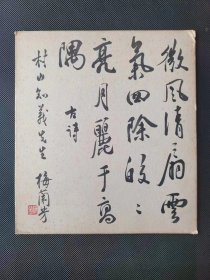 微風清扇雲
氣四除皎〻
亮月麗于高
隅
古詩
村山知義先生
梅蘭芳